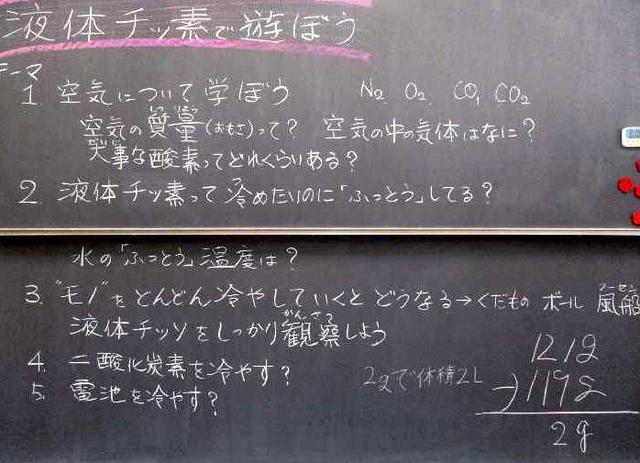 液体チッ素で遊ぼう
テーマ
1 空気について学ぼう N2 O2 CO, CO2
しつりょう
空気の質量(おもさ)って? 空気の中の気体はなに?
大事な酸素ってどれくらいある?
2. 液体チッ素って冷めたいのに「ふっとう」してる?
水の「ふっとう」温度は?
3. "モノ"をどんどん冷やしていくとどうなる→くだもの ボール 風船
かんさつ
液体チッソをしっかり観察しよう
4. 二酸化炭素を冷やす?
5. 電池を冷やす?
2gで体積2L
121g
-)119g
2g